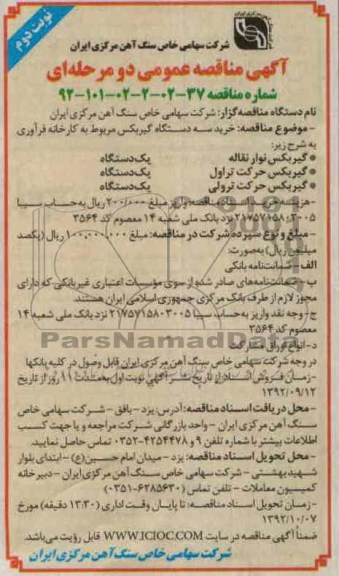 نوبت دوم
شرکت سهامی خاص سنگ آهن مرکزی ایران
آگهی مناقصه عمومی دو مرحله‌ای
شماره مناقصه ۳۷-۰۲-۲-۰۲-۱۰۱-۹۲
نام دستگاه مناقصه‌گزار: شرکت سهامی خاص سنگ آهن مرکزی ایران
- موضوع مناقصه: خرید سه دستگاه گیربکس مربوط به کارخانه فرآوری
به شرح زیر:
● گیربکس نوار نقاله یک‌دستگاه
● گیربکس حرکت تراول یک‌دستگاه
● گیربکس حرکت ترولی یک‌دستگاه
-هزینه خرید اسناد مناقصه: واریز مبلغ ۲۰۰/۰۰۰ ریال به حساب سیبا
۲۱۷۵۷۱۵۸۰۳۰۰۵ نزد بانک ملی شعبه ۱۴ معصوم کد ۳۵۶۴
- مبلغ و نوع سپرده شرکت در مناقصه: مبلغ ۱۰۰,۰۰۰,۰۰۰ ریال (یکصد
میلیون ریال) به‌صورت:
الف - ضمانت‌نامه بانکی
ب- ضمانت‌نامه‌های صادر شده از سوی مؤسسات اعتباری غیربانکی که دارای
مجوز لازم از طرف بانک مرکزی جمهوری اسلامی ایران هستند
ج- وجه نقد واریز به‌حساب سیبا ۲۱۷۵۷۱۵۸۰۳۰۰۵ نزد بانک ملی شعبه ۱۴
معصوم کد ۳۵۶۴
د- انواع اوراق مشارکت
در وجه شرکت سهامی خاص سنگ آهن مرکزی ایران قابل وصول در کلیه بانکها
-زمان فروش اسناد: از تاریخ نشر آگهی نوبت اول به‌مدت ۱۱ روز از تاریخ
۱۳۹۲/۰۹/۱۲
- محل دریافت اسناد مناقصه: آدرس یزد - بافق - شرکت سهامی خاص
سنگ آهن مرکزی ایران - واحد بازرگانی شرکت مراجعه و یا جهت کسب
اطلاعات بیشتر با شماره تلفن ۹ و ۴۲۵۴۴۷۸-۰۳۵۲ تماس حاصل نمایید.
- محل تحویل اسناد مناقصه: یزد - میدان امام حسین(ع) - ابتدای بلوار
شهید بهشتی - شرکت سهامی خاص سنگ آهن مرکزی ایران - دبیرخانه
کمیسیون معاملات - تلفن تماس (۶۲۸۵۶۳۰-۰۳۵۱)
- زمان تحویل اسناد مناقصه: تا پایان وقت اداری (۱۳:۳۰ دقیقه) مورخ
۱۳۹۲/۱۰/۰۷
ضمناً آگهی مناقصه در سایت WWW.ICIOC.COM قابل رؤیت می‌باشد.
شرکت سهامی خاص سنگ آهن مرکزی ایران
ParsNamadData